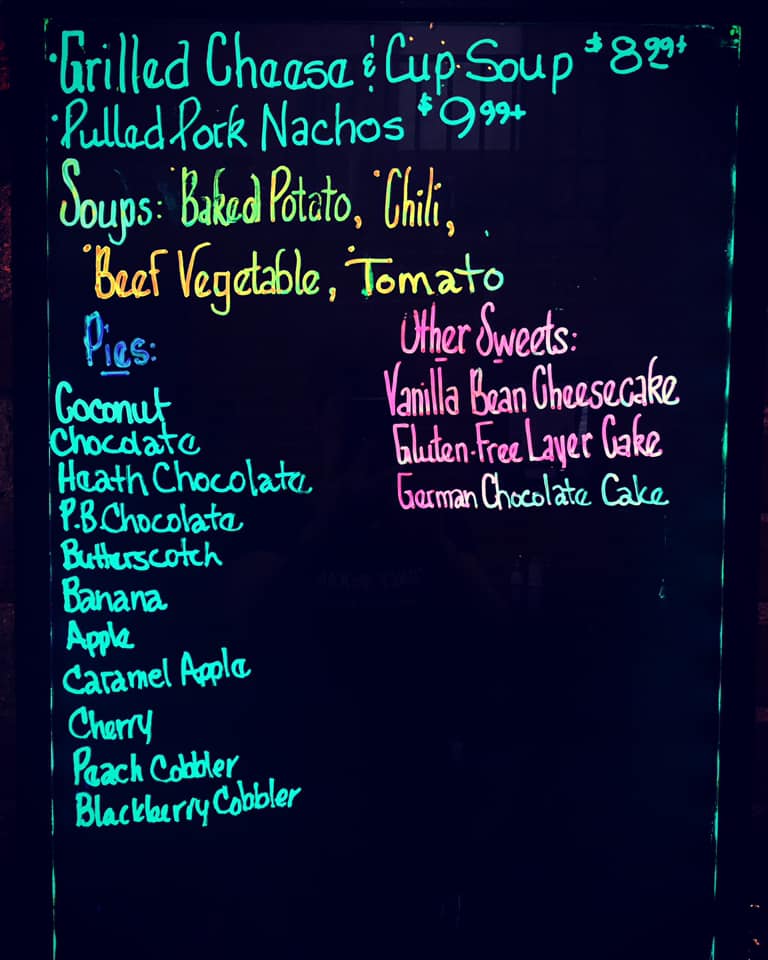 ·Grilled Cheese & Cup Soup $8.99+
·Pulled Pork Nachos $9.99+
Soups: ·Baked Potato, ·Chili,
·Beef Vegetable, ·Tomato
Pies:
Coconut
Chocolate
Heath Chocolate
P.B. Chocolate
Butterscotch
Banana
Apple
Caramel Apple
Cherry
Peach Cobbler
Blackberry Cobbler
Other Sweets:
Vanilla Bean Cheesecake
Gluten-Free Layer Cake
German Chocolate Cake